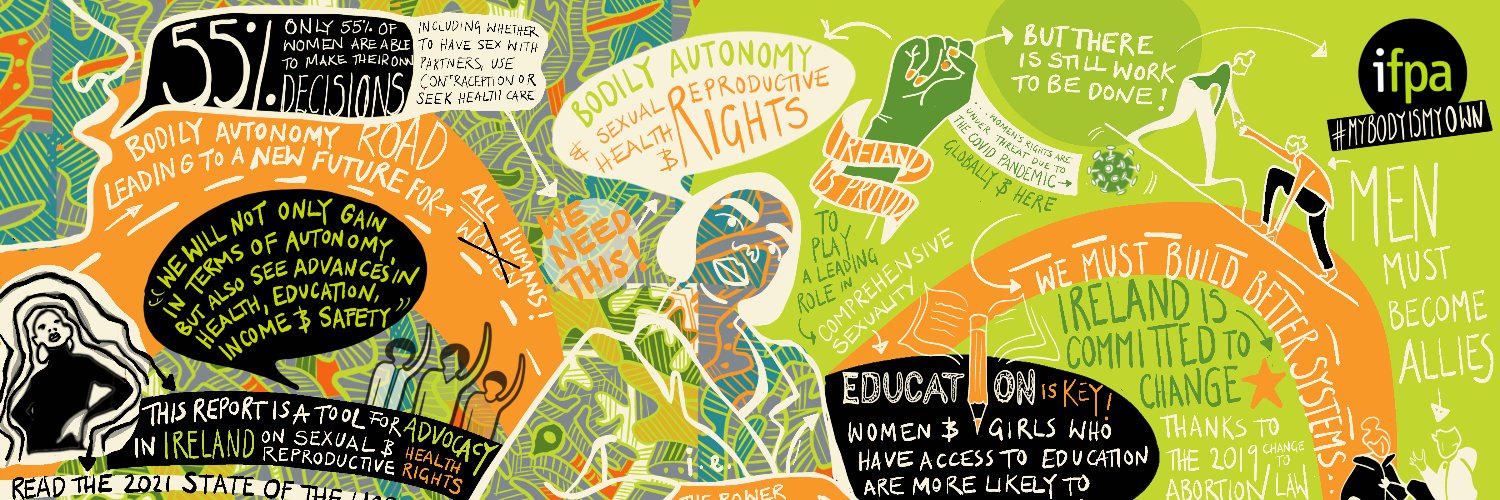 55%.
ONLY 55% OF
WOMEN ARE ABLE
TO MAKE THEIR OWN
DECISIONS
INCLUDING WHETHER
TO HAVE SEX WITH
PARTNERS, USE
CONTRACEPTION OR
SEEK HEALTH CARE
BODILY AUTONOMY ROAD
LEADING TO A NEW FUTURE FOR
ALL
HUMANS!
"WE WILL NOT ONLY GAIN
IN TERMS OF AUTONOMY,
BUT ALSO SEE ADVANCES IN
HEALTH, EDUCATION,
INCOME & SAFETY"
THIS REPORT IS A TOOL FOR ADVOCACY
IN IRELAND ON SEXUAL &
REPRODUCTIVE HEALTH
RIGHTS
READ THE 2021 STATE OF THE
WE
NEED
THIS!
BODILY AUTONOMY
& SEXUAL
HEALTH &
REPRODUCTIVE
RIGHTS
i.e.
THE POWER
IRELAND
IS PROUD
TO
PLAY
A LEADING
ROLE IN
COMPREHENSIVE
SEXUALITY
EDUCATION IS KEY!
WOMEN & GIRLS WHO
HAVE ACCESS TO EDUCATION
ARE MORE LIKELY TO
BUT THERE
IS STILL WORK
TO BE DONE!
WOMEN'S RIGHTS ARE
UNDER THREAT DUE TO
THE COVID PANDEMIC
GLOBALLY & HERE
WE MUST BUILD BETTER SYSTEMS...
IRELAND IS
COMMITTED TO
CHANGE
THANKS TO
THE 2019 CHANGE
TO
ABORTION LAW
ifpa
#MYBODYISMYOWN
MEN
MUST
BECOME
ALLIES